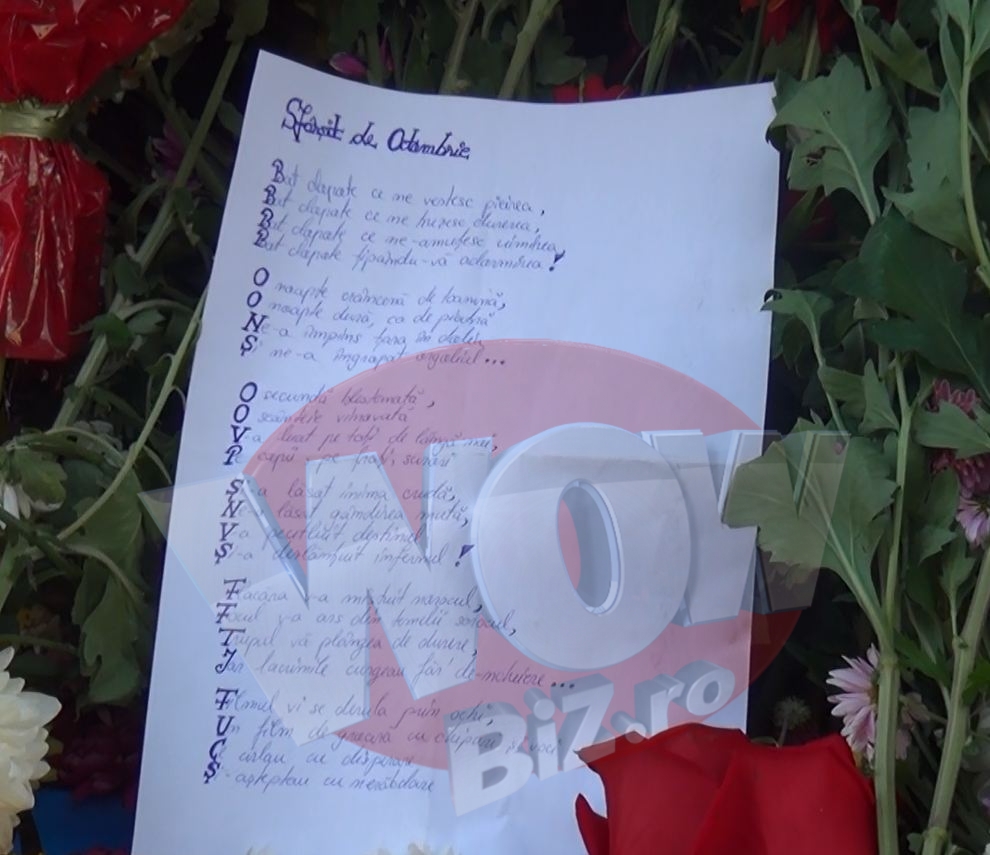 Sfârșit de Octombrie
Bat clopote ce me vestesc pieirea,
Bat clopote ce me durerea,
Bat clopote ce me-amutesc uimirea,
Bat clopote țipându-vă adormirea!
O noapte de toamnă,
O noapte dură, ca de piatră
Ne-a împins țara în doliu
Și ne-a îngropat orgoliul...
O secundă blestemată,
O scânteie vinovată
V-a luat pe toți de lângă noi,
copii, pe frați, surori
S-a lăsat inima crudă,
Ne-a lăsat gândirea mută,
V-a pecetluit destinul
Și-a descătușat infernul!
Flacăra v-a norocul,
Focul v-a ars din temelii sorocul,
Trupul vă plângea de durere,
Iar lacrimile curgeau făr' de-ncetare...
Filmul vi se derula prin ochi,
Un film de groază cu chipuri
cu disperare
Ș așteptau cu nerăbdare
WOW
BiZ.ro